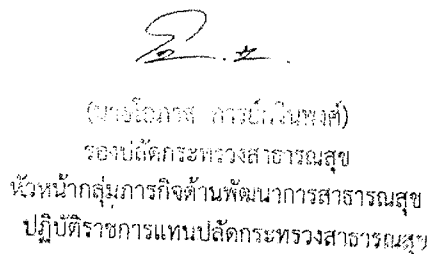 (นายโอภาส การย์กวินพงศ์)
รองปลัดกระทรวงสาธารณสุข
หัวหน้ากลุ่มภารกิจด้านพัฒนาการสาธารณสุข
ปฏิบัติราชการแทนปลัดกระทรวงสาธารณสุข